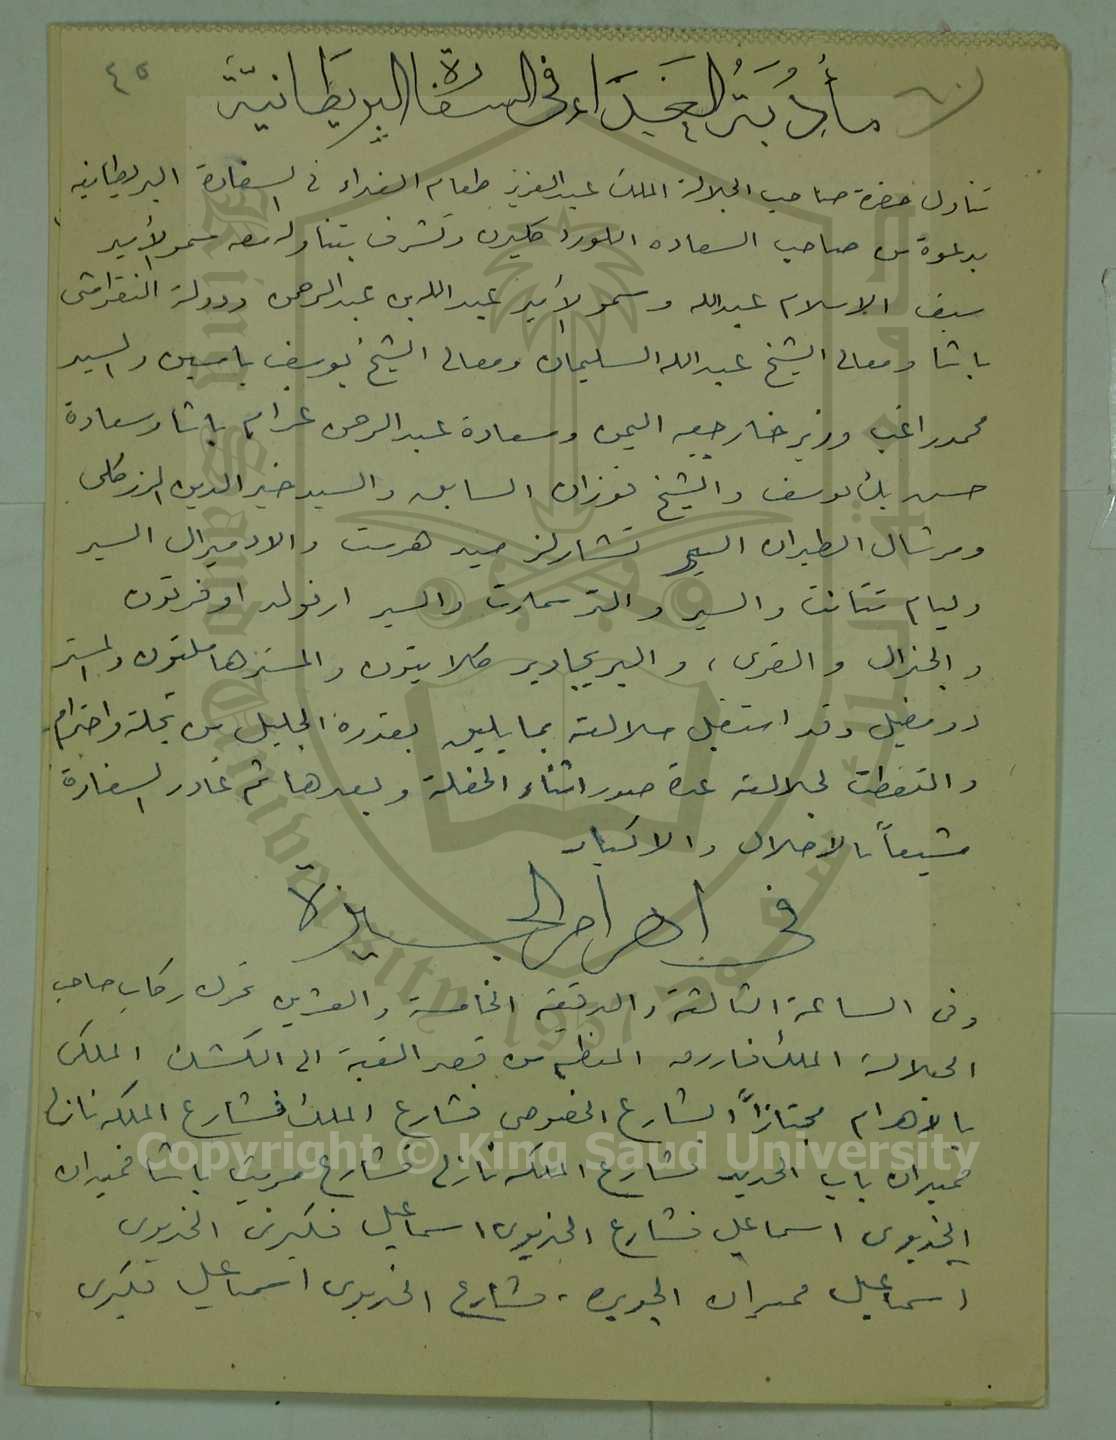 ٤٥
مأدُبَةُ الغَدَاء في السفارة البريطَانيّة
تناول حضرة صاحب الجلالة الملك عبدالعزيز طعام الغداء في السفارة البريطانيه
بدعوة من صاحب السعاده اللورد كليرن وتشرف بتناوله معه سمو الأمير
سيف الاسلام عبدالله وسمو الأمير عبدالله بن عبدالرحمن ودولة النقراشي
باشا ومعالى الشيخ عبدالله السليمان ومعالى الشيخ يوسف ياسين والسيد
محمد راغب وزير خارجيه اليمن وسعادة عبدالرحمن عزام باشا وسعادة
حسن بك يوسف والشيخ فوزان السابق والسيد خير الدين الزركلى
ومرشال الطيران السير تشارلز ميد هرست والادميرال السير
وليام تنانت والسير والتر سمارت والسير ارنولد اوفرتون
والجنرال والقرى، والبريجادير كلايتون والمستر هاملتون والمستر
وقد استقبل جلالته بما يليق بقدره الجليل من تجلة واحترام
والتقطت لجلالته عدة صور اثناء الحفلة وبعدها تم غادر السفارة
مشيعاً بالاجلال والاكبار
في اهرام الجيزة
وفى الساعة الثالثة والدقيقة الخامسة والعشرين تحرك ركاب صاحب
الجلالة الملك فاروق المعظم من قصر القبة الى الكشك الملكى
بالأهرام مجتازاً الشارع الخصوصى فشارع الملك فشارع الملكه نازلى
فميدان باب الحديد فشارع الملكه نازلى فشارع مريت باشا فميدان
الخديوى اسماعيل فشارع الخديوى اسماعيل فكبرى الخديوى
اسماعيل فميدان الجزيره، فشارع الخديوى اسماعيل فكبرى
Copyright © King Saud University
King Saud University
1957